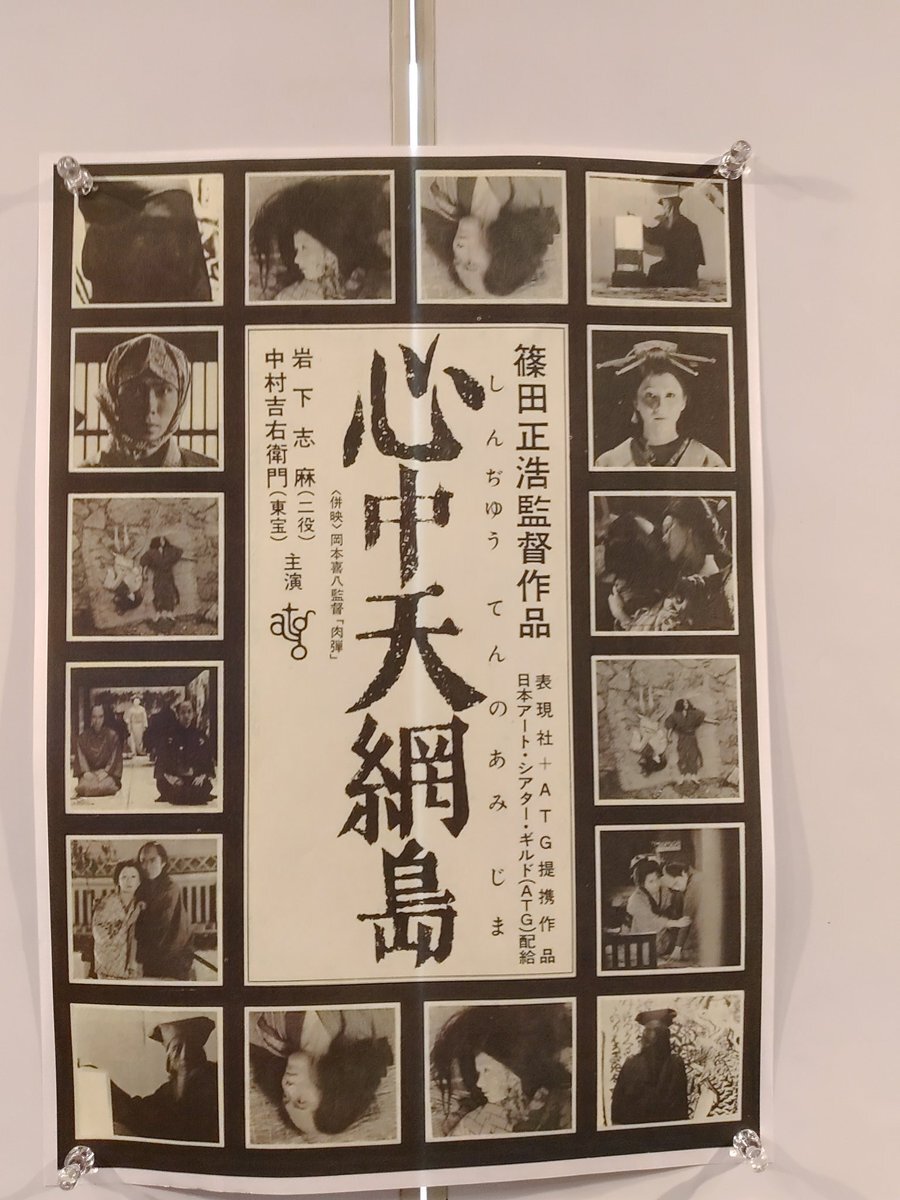 篠田正浩監督作品
表現社+ATG提携作品
日本アート・シアター・ギルド(ATG)配給
しんぢゆう てんのあみじま
心中天網島
〈併映〉岡本喜八監督「肉弾」
岩下志麻(二役)
中村吉右衛門(東宝)
主演
atg